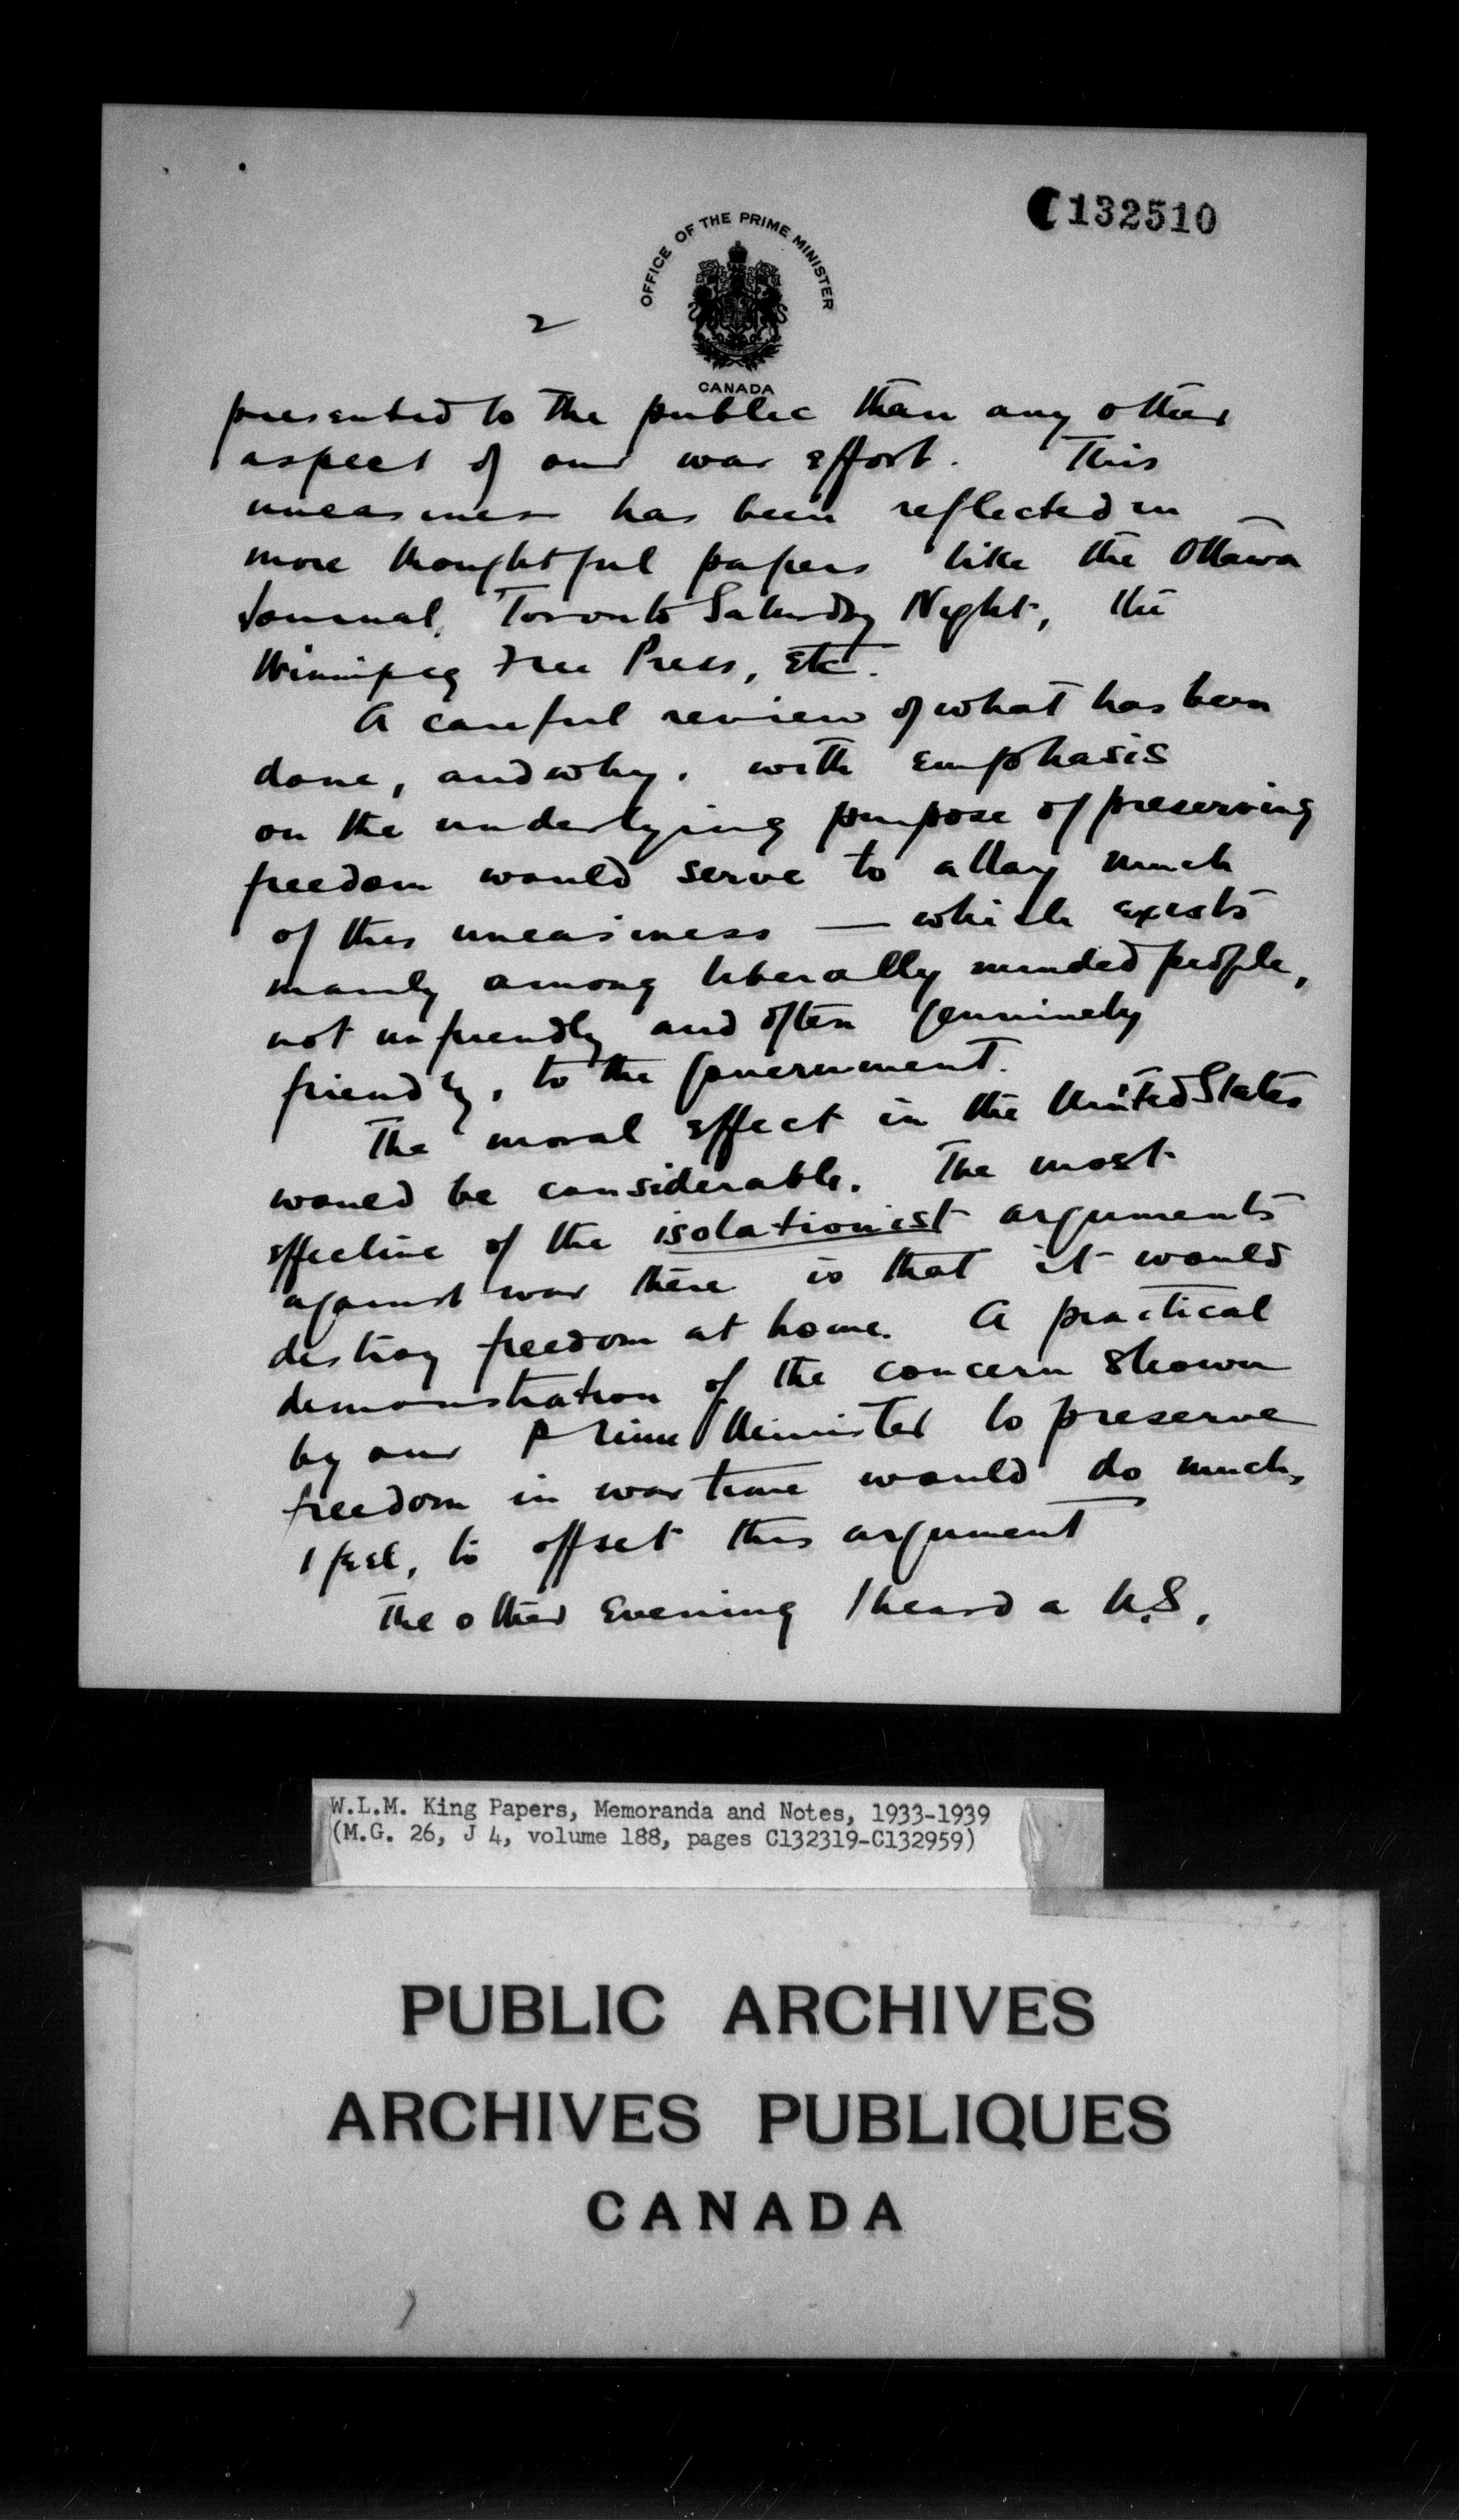 C132510
OFFICE OF THE PRIME MINISTER
CANADA
2
presented to the public than any other
aspect of our war effort. This
uneasiness has been reflected in
more thoughtful papers like the Ottawa
Journal, Toronto Saturday Night, the
Winnipeg Free Press, etc.
A careful review of what has been
done, and why, with emphasis
on the underlying purpose of preserving
freedom would serve to allay much
of this uneasiness — which exists
mainly among liberally minded people,
not unfriendly and often genuinely
friendly, to the government.
The moral effect in the United States
would be considerable. The most
effective of the isolationist arguments
against war there is that it would
destroy freedom at home. A practical
demonstration of the concern shown
by our Prime Minister to preserve
freedom in war time would do much,
I feel, to offset this argument
The other evening I heard a U.S.
W.L.M. King Papers, Memoranda and Notes, 1933-1939
(M.G. 26, J 4, volume 188, pages C132319-C132959)
PUBLIC ARCHIVES
ARCHIVES PUBLIQUES
CANADA